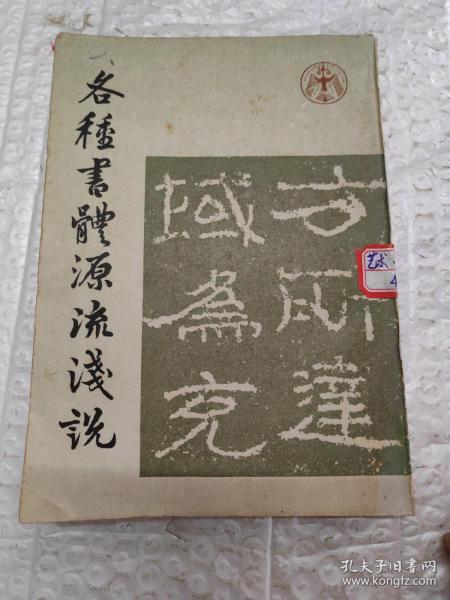 各種書體源流淺説
方
達
域為克
艺术
4
孔夫子旧书网
www.kongfz.com